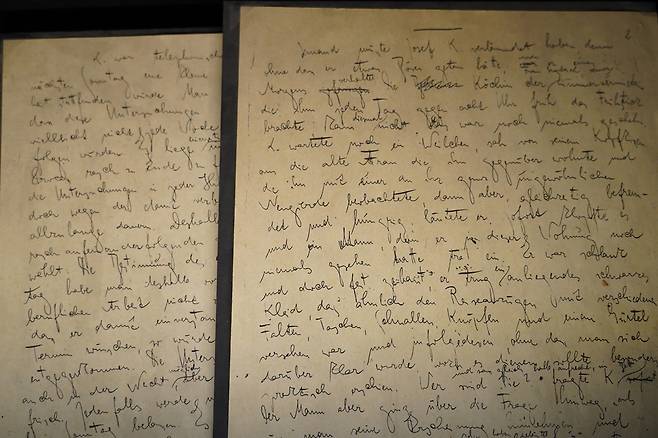 K. war telephonisch
nächsten Sonntag eine kleine
heit stattfinden würde. Man
dass diese Untersuchungen
vielleicht nicht jede Woche
folgen würden. Es liege einerseits
Process rasch zu Ende zu
die Untersuchungen in jeder Hin
doch wegen der damit verb
allzulange dauern. Deshalb
rasch aufeinanderfolgenden
wählt. Die Bestimmung des
tag habe man deshalb vor
beruflichen Arbeit nicht
dass er damit einverstan
Termin wünschen, so würde
entgegenkommen. Die Unters
auch in der Nacht
frisch. Jedenfalls werde
2
Jemand musste Josef K. verläumdet haben, denn
ohne dass er etwas Böses getan hätte, war er eines
Morgens verhaftet. Die Köchin der Zimmervermieterin
die ihm jeden Tag gegen acht Uhr früh das Frühstück
brachte kam diesmal nicht. Das war noch niemals geschehn.
K. wartete noch ein Weilchen, sah von seinem Kopfkissen
aus die alte Frau die ihm gegenüber wohnte und
die ihn mit einer an ihr ganz ungewöhnlichen
Neugierde beobachtete, dann aber, gleichzeitig befrem-
det und hungrig, läutete er. Sofort klopfte es
und ein Mann, den er in dieser Wohnung noch
niemals gesehen hatte trat ein. Er war schlank
und doch fest gebaut, er trug ein anliegendes schwarzes
Kleid, das ähnlich den Reiseanzügen mit verschiedenen
Falten, Taschen, Schnallen, Knöpfen und einem Gürtel
versehen war und infolgedessen, ohne dass man sich
darüber klar wurde, wozu es dienen sollte, besonders
praktisch erschien. „Wer sind Sie?" fragte K. und sass gleich halb aufrecht im Bett
Der Mann aber ging über die Frage hinweg, als
man seine Erscheinung hinnehmen und